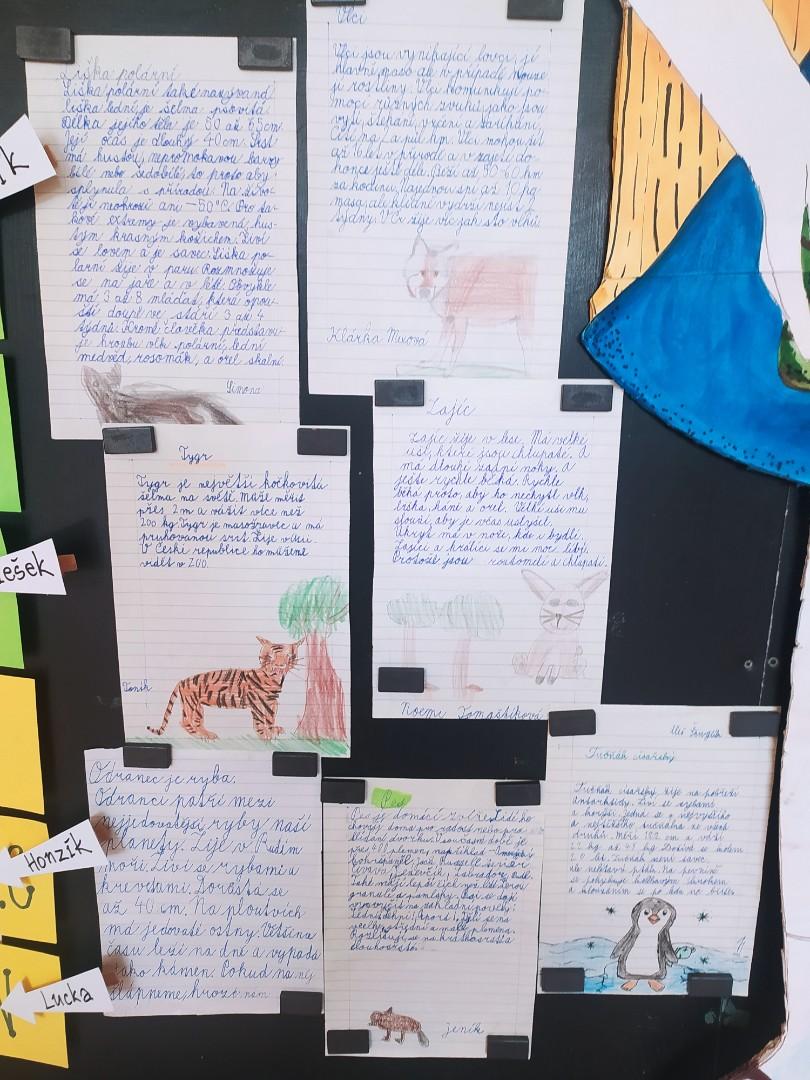 Liška polární
Liška polární také nazývaná
liška lední je šelma psovitá.
Délka jejího těla je 50 až 65cm.
Její ocas je dlouhý 40cm. Srst
má hustou, nepromokavou barvy
bílé nebo šedobílé, to proto aby
splynula s přírodou.
neohrozí ani -50°C. Pro ta-
kové extrémy je vybavená hus-
tým krásným kožichem. Živí
se lovem a je savec. Liška po-
lární žije v páru. Rozmnožuje
se na jaře a v létě. Obvykle
má 3 až 8 mláďat, která opou-
ští doupě ve stáří 3 až 4
týdnů. Kromě člověka představu-
je hrozbu vlk polární, lední
medvěd, rosomák, a orel skalní.
Simona
Vlci
Vlci jsou vynikající lovci, jí
hlavně maso ale v případě nouze
jí rostliny. Vlci komunikují po-
mocí různých zvuků jako jsou
vytí, štěkání, vrčení a
až 16 let v přírodě a v zajetí do-
konce ještě déle. Běží až 50-60 km
za hodinu. Najednou sní až 10 kg
masa, ale klidně vydrží nejíst 2
týdny. V Čr žije víc jak sto vlků.
Klárka Mixová
Tygr
Tygr je největší kočkovitá
šelma na světě. Může měřit
přes 2 m a vážit více než
200 kg. Tygr je masožravec a má
pruhovanou srst. Žije v
V České republice ho můžeme
vidět v ZOO.
Toník
Zajíc
Zajíc žije v lese. Má velké
uši, které jsou chlupaté. A
má dlouhé zadní nohy. A
ještě rychle běhá. Rychle
běhá proto, aby ho nechytl vlk,
liška, káně a orel. Velké uši mu
slouží, aby je včas uslyšel.
Úkryt má v noře, kde i bydlí.
Zajíci a králíci se mi moc líbí.
Protože jsou roztomilí a chlupatí.
Noemi Tomaštíková
Odranec je ryba.
Odranci patří mezi
nejjedovatější ryby naší
planety. Žije v Rudém
moři. Živí se rybami a
krevetami. Dorůstá se
až 40 cm. Na ploutvích
má jedovaté ostny. Většinu
času leží na dně a vypadá
jako kámen. Pokud na něj
šlápneme, hrozí nám
Pes
Pes je domácí zvíře. Lidi ho
chovají doma pro radost nebo pro
hlídání dvorku. V současné době je
přes 400 plemen, například
jack Russell teriér
jezevčík, labradore
jeník
Tučňák císařský
Tučňák císařský žije na pobřeží
Antarktidy. Živí se rybami
a korýši. Jedná se o největšího
a nejtěžšího tučňáka ze všech
druhů. Měří 122 cm a váží
22 kg až 45 kg. Dožívá se kolem
20 let. Tučňák není savec,
ale nelétavý pták. Na pevnině
se pohybuje kolébavým krokem
a klouzáním se po ledu na břiše.
ík
ešek
Honzík
Lucka